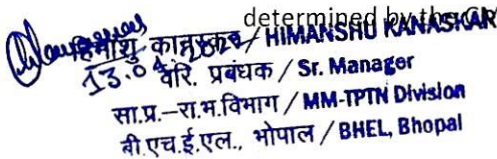 determined by the
हिमांशु कानस्कर / HIMANSHU KANASKAR
13.04.2024
वरि. प्रबंधक / Sr. Manager
सा.प्र.–रा.भ.विभाग / MM-TPTN Division
बी.एच.ई.एल., भोपाल / BHEL, Bhopal